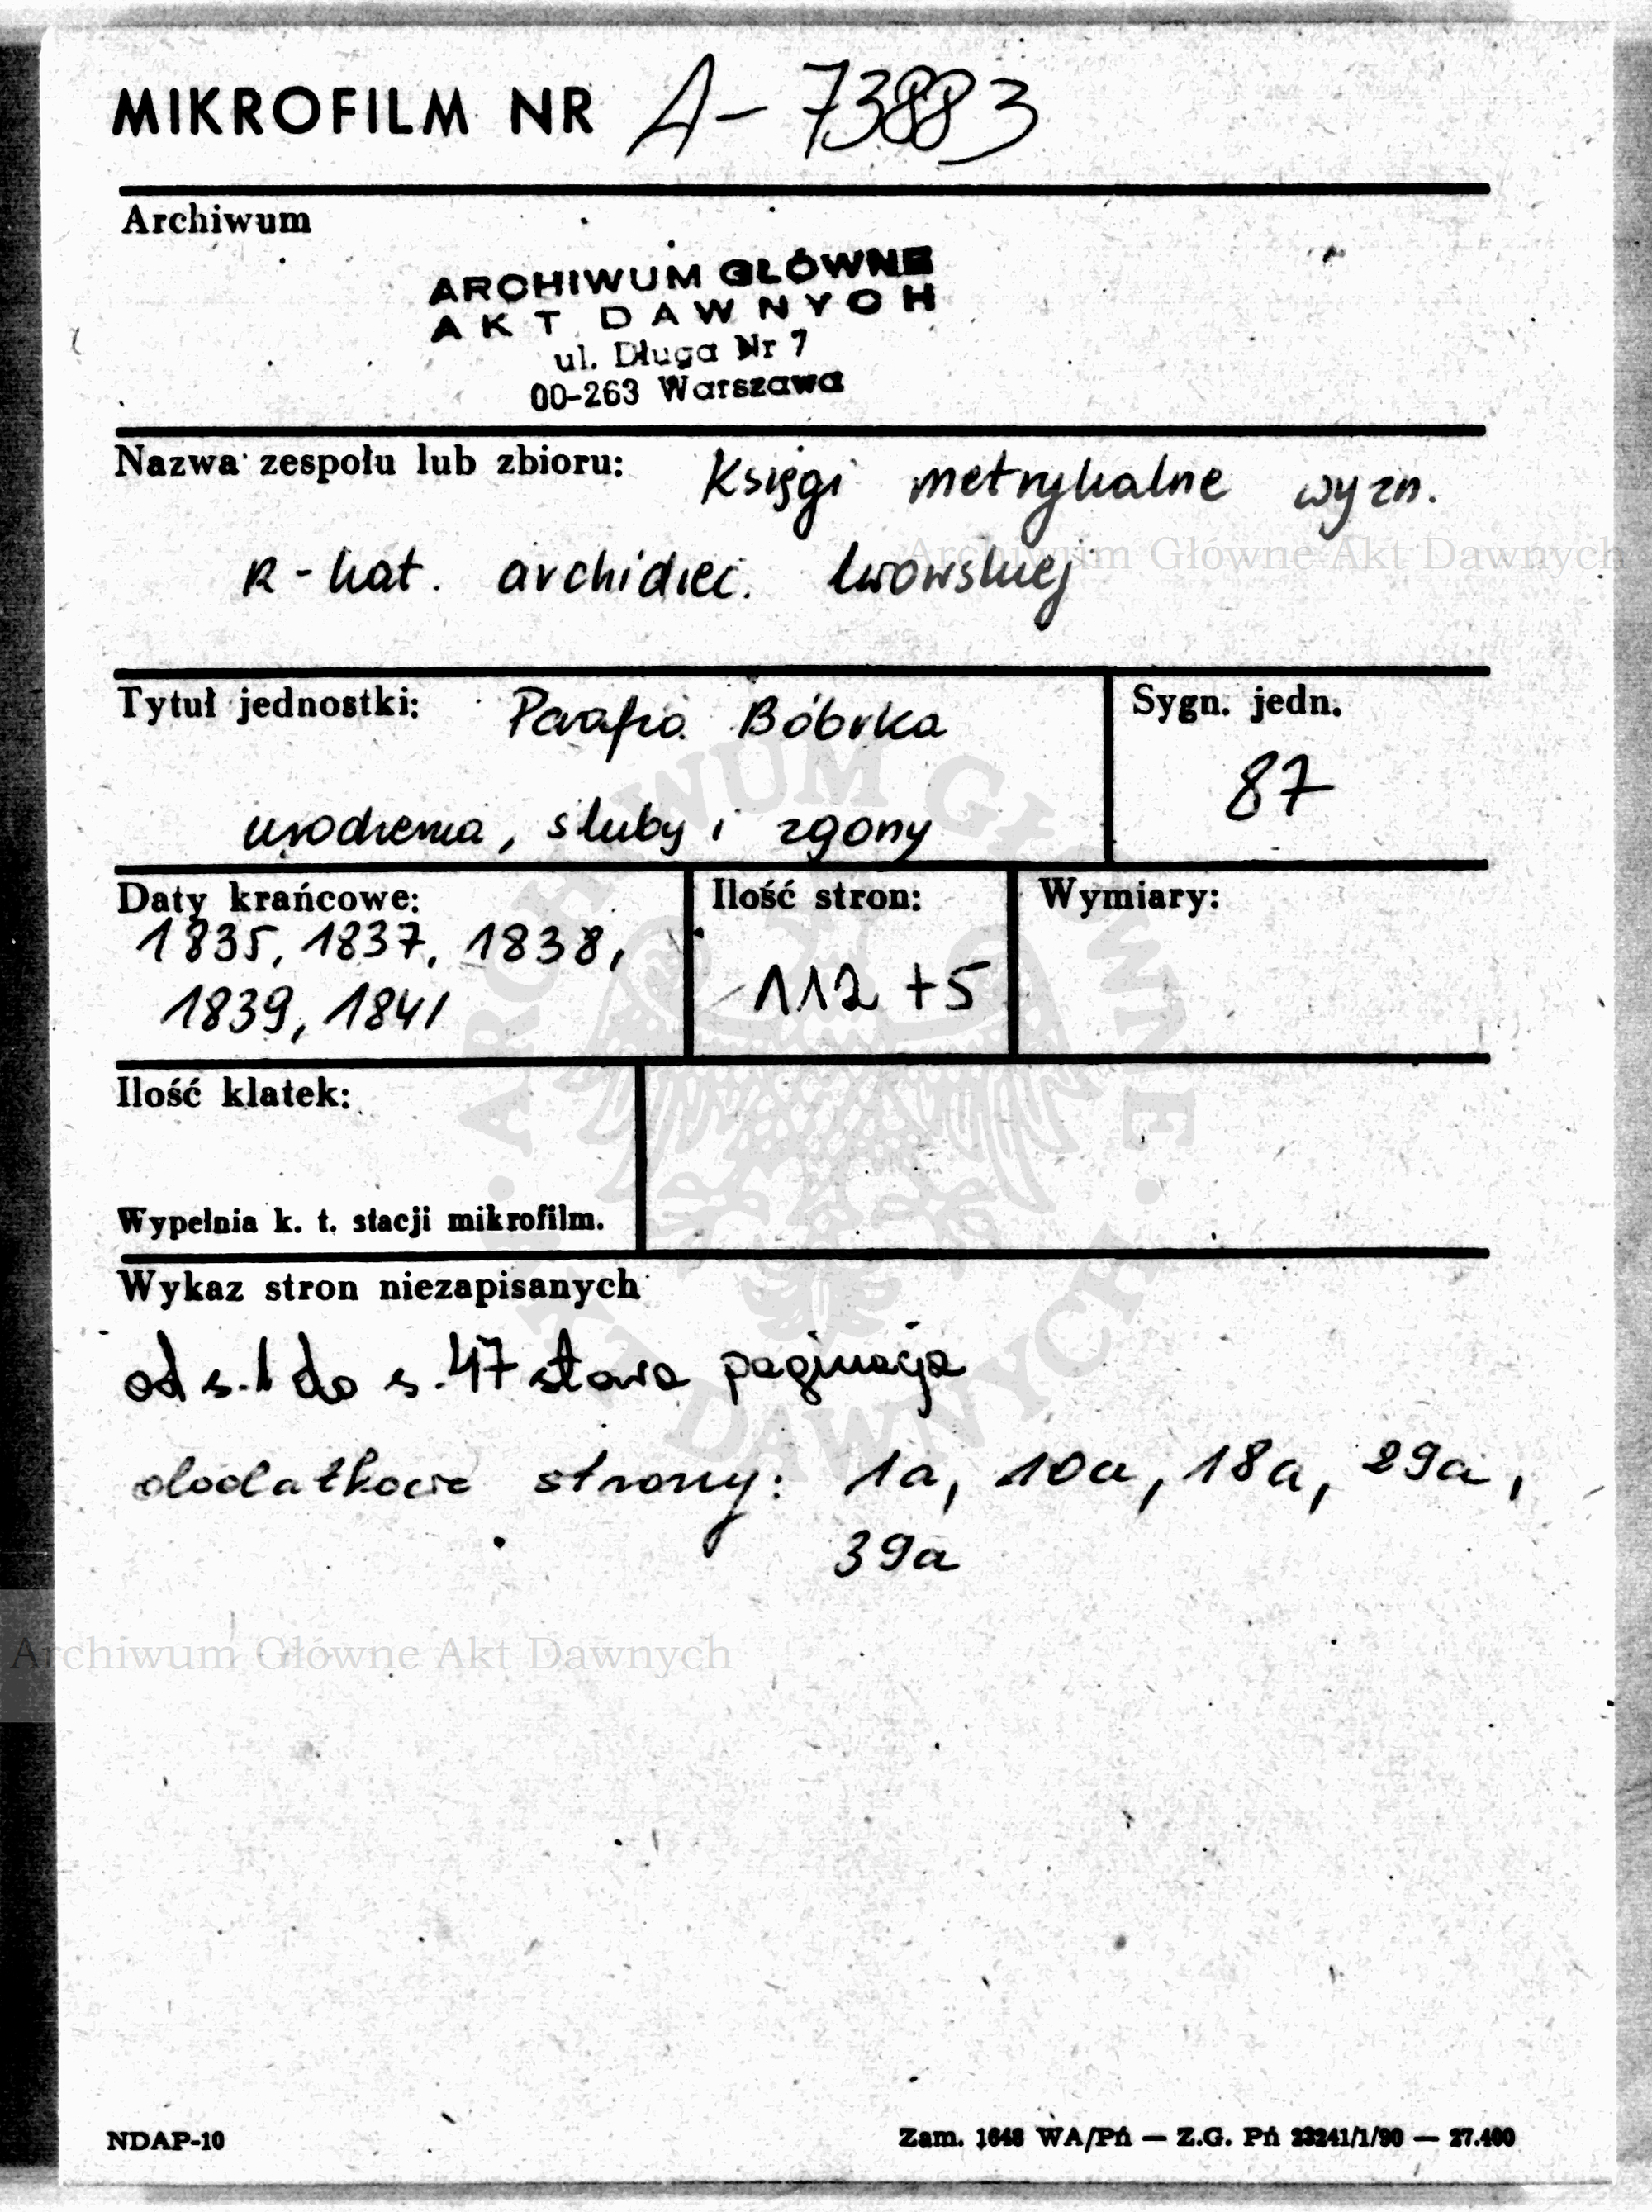 MIKROFILM NR A- 73883
Archiwum
ARCHIWUM GŁÓWNE
AKT DAWNYCH
ul. Długa Nr 7
00-263 Warszawa
Nazwa zespołu lub zbioru: Księgi metrykalne wyzn.
R-kat. archidiec. lwowskiej
Archiwum Główne Akt Dawnych
Tytuł jednostki: Parafia Bóbrka
urodzenia, śluby i zgony
Sygn. jedn.
87
Daty krańcowe:
1835, 1837, 1838,
1839, 1841
Ilość stron:
112 + 5
Wymiary:
Ilość klatek:
Wypełnia k. t. stacji mikrofilm.
ARCHIWUM GŁÓWNE
AKT DAWNYCH
Wykaz stron niezapisanych
od s. 1 do s. 47 stara paginacja
dodatkowe strony: 1a, 10a, 18a, 29a,
39a
Archiwum Główne Akt Dawnych
NDAP-10
Zam. 1648 WA/Pń — Z.G. Pń 23241/1/90 — 27.400